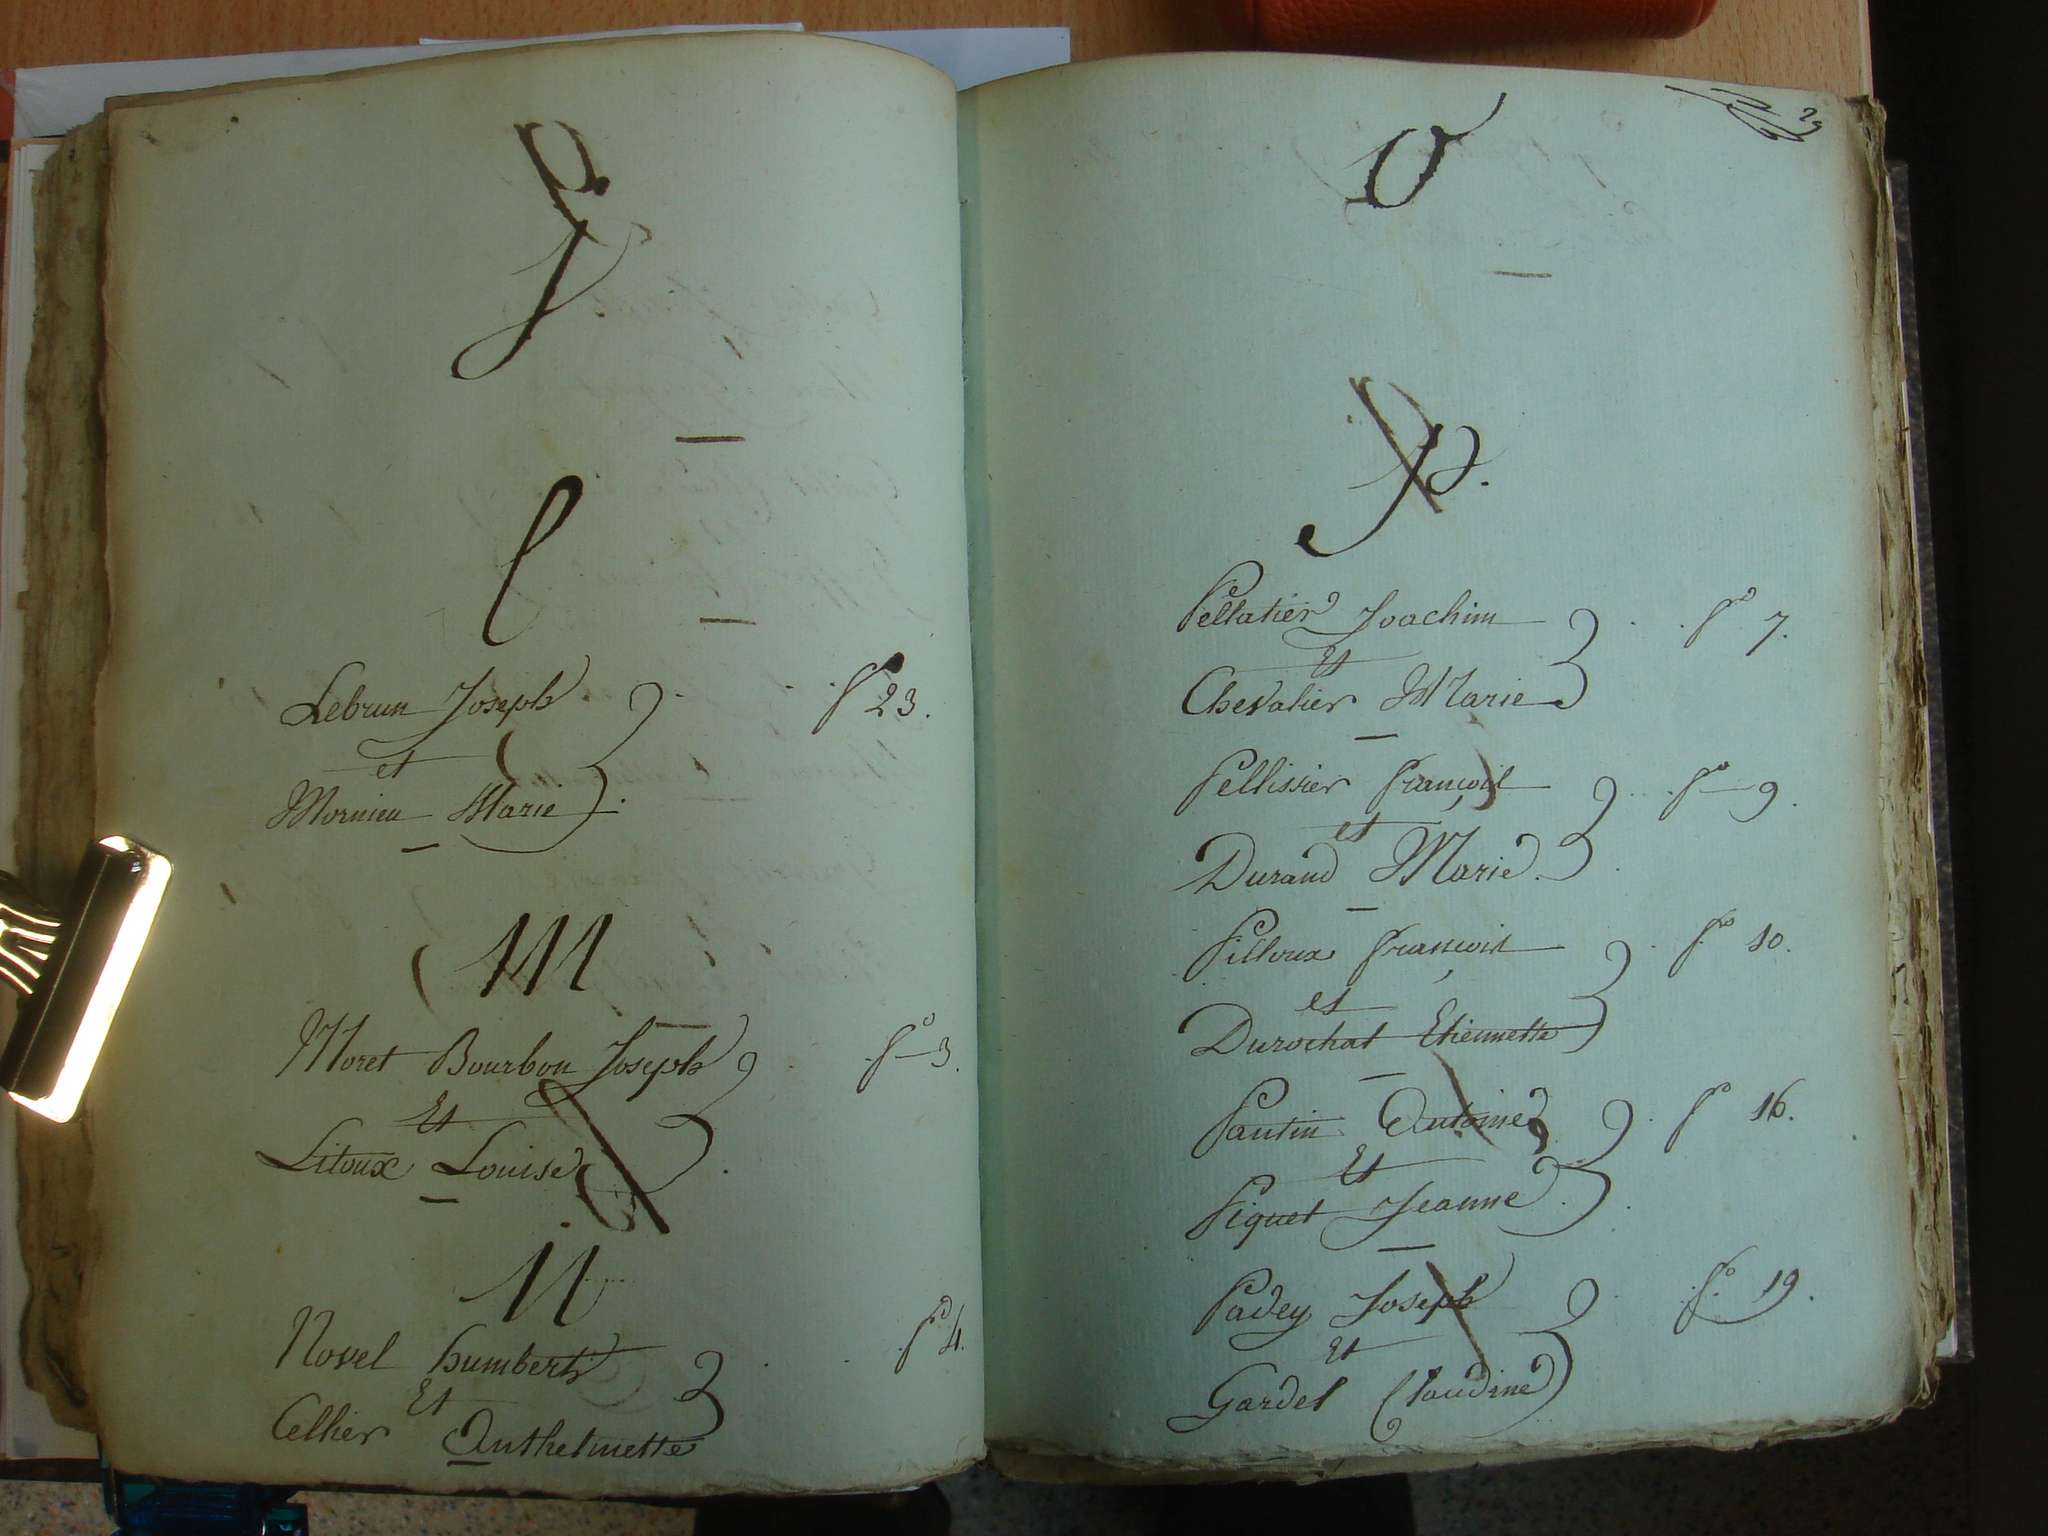 J
L
Lebrun Joseph . . . f° 23.
et
Mornieu Marie .
M
Moret Bourbon Joseph . . f° 3.
Et
Litoux Louise .
N
Novel humbert . . . f° 4.
Et
Cellier Anthelmette
29
O
P.
Pellatier Joachim . . . f° 7.
Et
Chevalier Marie
Pellissier françois . . . f° 9.
et
Durand Marie .
Pilloux françois . f° 10.
et
Durochat Etiennette
Pautin Antoine . f° 16.
Et
Piquet Jeanne .
Padey Joseph . f° 19.
Et
Gardet Claudine